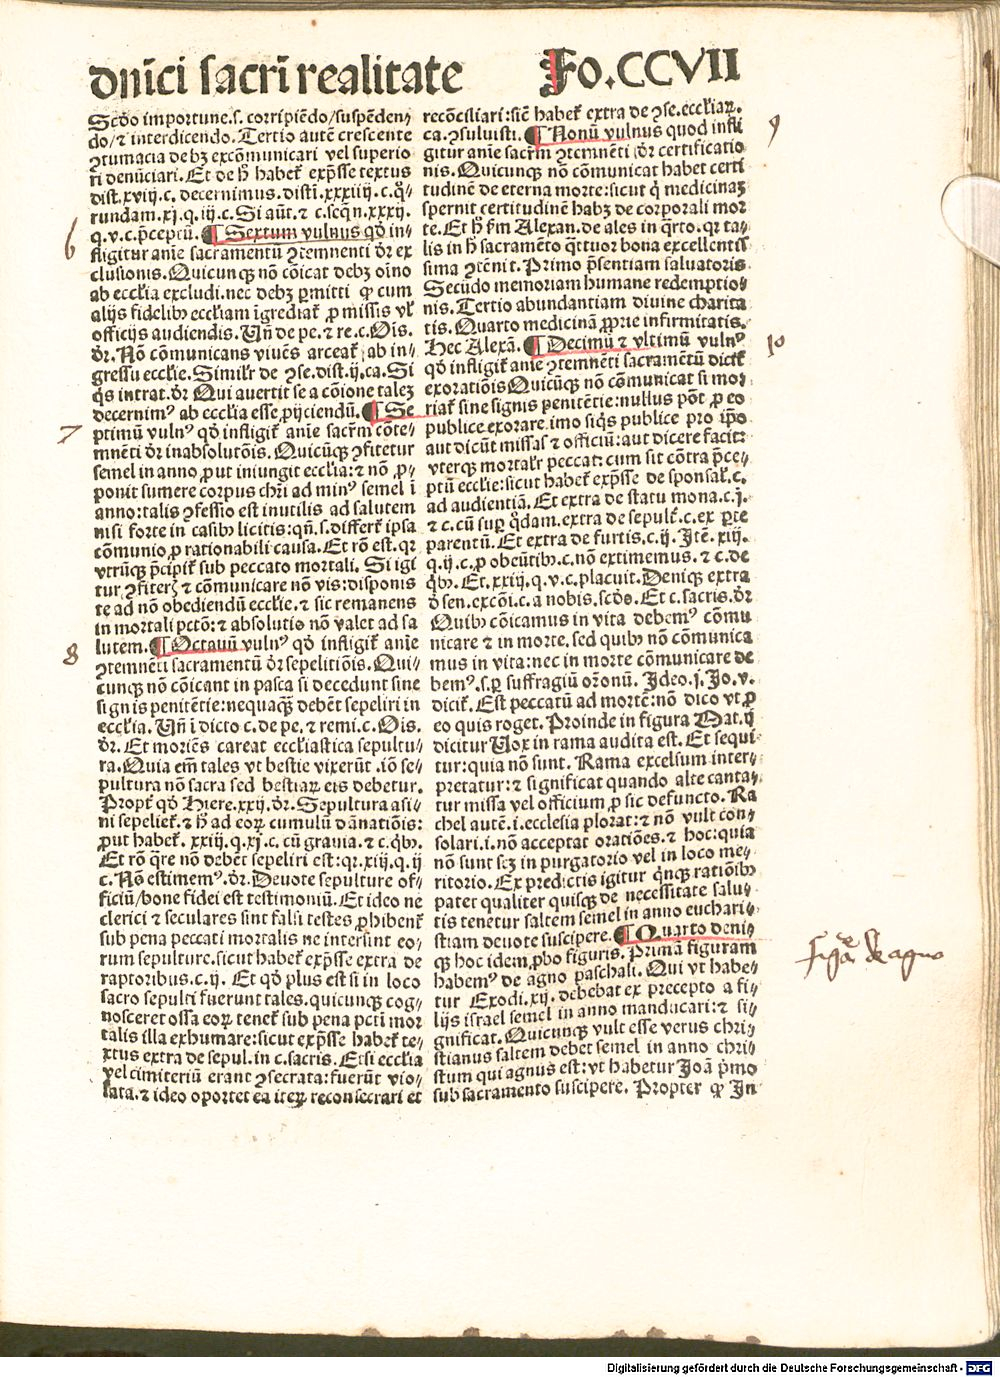 dnĩci sacrĩ realitate Fo.CCVII
Scđo importune.s. corripiẽdo/suspẽden⸗
do/⁊ interdicendo. Tertio autẽ crescente
ꝯtumacia debꝫ excõmunicari vel superio
ri denũciari. Et de h̾ habet᷑ exp̃sse textus
dist.xvij.c. decernimus. distĩ.xxxiiij.c.q̃⸗
rundam.xj.q.iij.c. Si aũt.⁊ c.seq̃n.xxxij.
q.v.c.p̃ceptũ. ¶ Sextum vulnus qđ in⸗
fligitur anĩe sacramentũ ꝯtemnenti đr ex
clusionis. Quicunqꝫ nõ cõicat debꝫ oĩno
ab eccl̃ia excludi. nec debꝫ ꝑmitti ꝙ cum
alijs fidelibꝰ eccl̃iam ĩgrediat᷑ ꝓ missis vl̃
officijs audiendis. Vñ de pe.⁊ re.c. Oĩs.
đr. Nõ cõmunicans viuẽs arceat᷑ ab in⸗
gressu eccl̃ie. Simil̃r de ꝯse.dist.ij.ca. Si
q̃s intrat. đr Qui auertit se a cõione talem
decernimꝰ ab eccl̃ia esse ꝓijciendũ. ¶ Se
ptimũ vulnꝰ qđ infligit᷑ anĩe sacr̃m cõte⸗
mnẽti đr inabsolutõis. Quicũqꝫ ꝯfitetur
semel in anno ꝓut iniungit eccl̃ia: ⁊ nõ ꝓ⸗
ponit sumere corpus chr̃i ad minꝰ semel ĩ
anno: talis ꝯfessio est inutilis ad salutem
nisi forte in casibꝰ licitis: qñ.s. differt᷑ ipsa
cõmunio ꝓ rationabili causa. Et rõ est. qr
vtrũqꝫ p̃cipit᷑ sub peccato mortali. Si igi
tur ꝯfiterꝭ ⁊ cõmunicare nõ vis: disponis
te ad nõ obediendũ eccl̃ie. ⁊ sic remanens
in mortali pctõ: ⁊ absolutio nõ valet ad sa
lutem. ¶ Octauũ vulnꝰ qđ infligit᷑ anĩe
ꝯtemnẽti sacramentũ đr sepelitiõis. Qui⸗
cunqꝫ nõ cõicant in pasca si decedunt sine
signis penitẽtie: nequaqꝫ debẽt sepeliri in
eccl̃ia. Vñ ĩ dicto c. de pe.⁊ remi.c. Oĩs.
đr. Et moriẽs careat eccl̃iastica sepultu⸗
ra. Quia em̃ tales vt bestie vixerũt. iõ se⸗
pultura nõ sacra sed bestiaꝝ eis debetur.
Propt᷑ qđ Hiere.xxij. đr. Sepultura asi⸗
ni sepeliet᷑.⁊ h̾ ad eoꝝ cumulũ dãnatiõis:
ꝓut habet᷑. xxiij.q.xj.c. cũ grauia. ⁊ c.q̃bꝰ.
Et rõ q̃re nõ debẽt sepeliri est: qr.xiij.q.ij
c. Nõ estimemꝰ. đr. Deuote sepulture of⸗
ficiũ/bone fidei est testimoniũ. Et ideo ne
clerici ⁊ seculares sint falsi testes ꝓhibent᷑
sub pena peccati mortalis ne intersint eo⸗
rum sepulture. sicut habet᷑ exp̃sse extra de
raptoribus.c.ij. Et qđ plus est si in loco
sacro sepulti fuerunt tales. quicunqꝫ cog⸗
nosceret ossa eoꝝ tenet᷑ sub pena pcti mor
talis illa exhumare: sicut exp̃sse habet᷑ te⸗
xtus extra de sepul. in c. sacris. Etsi eccl̃ia
vel cimiteriũ erant ꝯsecrata: fuerũt vio⸗
lata. ⁊ ideo oportet ea iteꝝ reconsecrari et
recõciliari: sic̃ habet᷑ extra de ꝯse.eccl̃iaꝝ.
ca. ꝯsuluisti. ¶ Nonũ vulnus quod infli
gitur anĩe sacr̃m ꝯtemnẽti đr certificatio
nis. Quicunqꝫ nõ cõmunicat habet certi
tudinẽ de eterna morte: sicut q̃ medicinaꝫ
spernit certitudinẽ habꝫ de corporali mor
te. Et h̾ ẽm Alexan. de ales in q̃rto. qr ta⸗
lis in h̾ sacramẽto q̃ttuor bona excellentis
sima ꝯtẽnit. Primo p̃sentiam saluatoris.
Secũdo memoriam humane redemptio⸗
nis. Tertio abundantiam diuine charita
tis. Quarto medicinã ꝓprie infirmitatis.
Hec Alexã. ¶ Decimũ ⁊ vltimũ vulnꝰ
qđ infligit᷑ anĩe ꝯtemnẽti sacramẽtũ dicit᷑
exoratiõis Quicũqꝫ nõ cõmunicat si mor
riat᷑ sine signis penitẽtie: nullus põt ꝓ eo
publice exorare. imo siq̃s publice pro ip̃o
aut dicũt missas ⁊ officiũ: aut dicere facit:
vterqꝫ mortal̃r peccat: cum sit cõtra p̃ce⸗
ptũ eccl̃ie: sicut habet᷑ exp̃sse de sponsal̃.c.
ad audientiã. Et extra de statu mona.c.j.
⁊ c. cũ suꝑ q̃dam. extra de sepult᷑.c. ex ꝑte
parentũ. Et extra de furtis.c.ij. Itẽ.xiij.
q.ij.c. ꝓ obeũtibꝰ.c. nõ extimemus.⁊ c. de
q̃bꝰ. Et.xxiij.q.v.c. placuit. Deniqꝫ extra
đ sen.excõi.c. a nobis.scđs. Et c. sacris. đr
Quibꝰ cõicamus in vita debemꝰ cõmu
nicare ⁊ in morte. sed quibꝰ nõ cõmunica
mus in vita: nec in morte cõmunicare de
bemꝰ.s.ꝑ suffragiũ orõnũ. Ideo.j.Jo.v.
dicit᷑. Est peccatũ ad mortẽ: nõ dico vt ꝓ
eo quis roget. Proinde in figura Mat.ij
dicitur Vox in rama audita est. Et sequi
tur: quia nõ sunt. Rama excelsum inter⸗
pretatur: ⁊ significat quando alte canta⸗
tur missa vel officium ꝓ sic defuncto. Ra
chel autẽ.i.ecclesia plorat: ⁊ nõ vult con⸗
solari.i.nõ acceptat oratiões.⁊ hoc: quia
nõ sunt scꝫ in purgatorio vel in loco me⸗
ritorio. Ex predictis igitur q̃nqꝫ ratiõibꝰ
patet qualiter quisqꝫ de necessitate salu⸗
tis tenetur saltem semel in anno euchari⸗
stiam deuote suscipere. ¶ Quarto deni⸗
qꝫ hoc idem ꝓbo figuris. Primã figuram
habemꝰ de agno paschali. Qui vt habe⸗
tur Exodi.xij. debebat ex precepto a fi⸗
lijs israel semel in anno manducari: ⁊ si⸗
gnificat. Quicunqꝫ vult esse verus chri⸗
stianus saltem debet semel in anno chri⸗
stum qui agnus est: vt habetur Joã p̃mo
sub sacramento suscipere. Propter ꝙ In
6
7
8
9
10
figͣ de agno
Digitalisierung gefördert durch die Deutsche Forschungsgemeinschaft - DFG